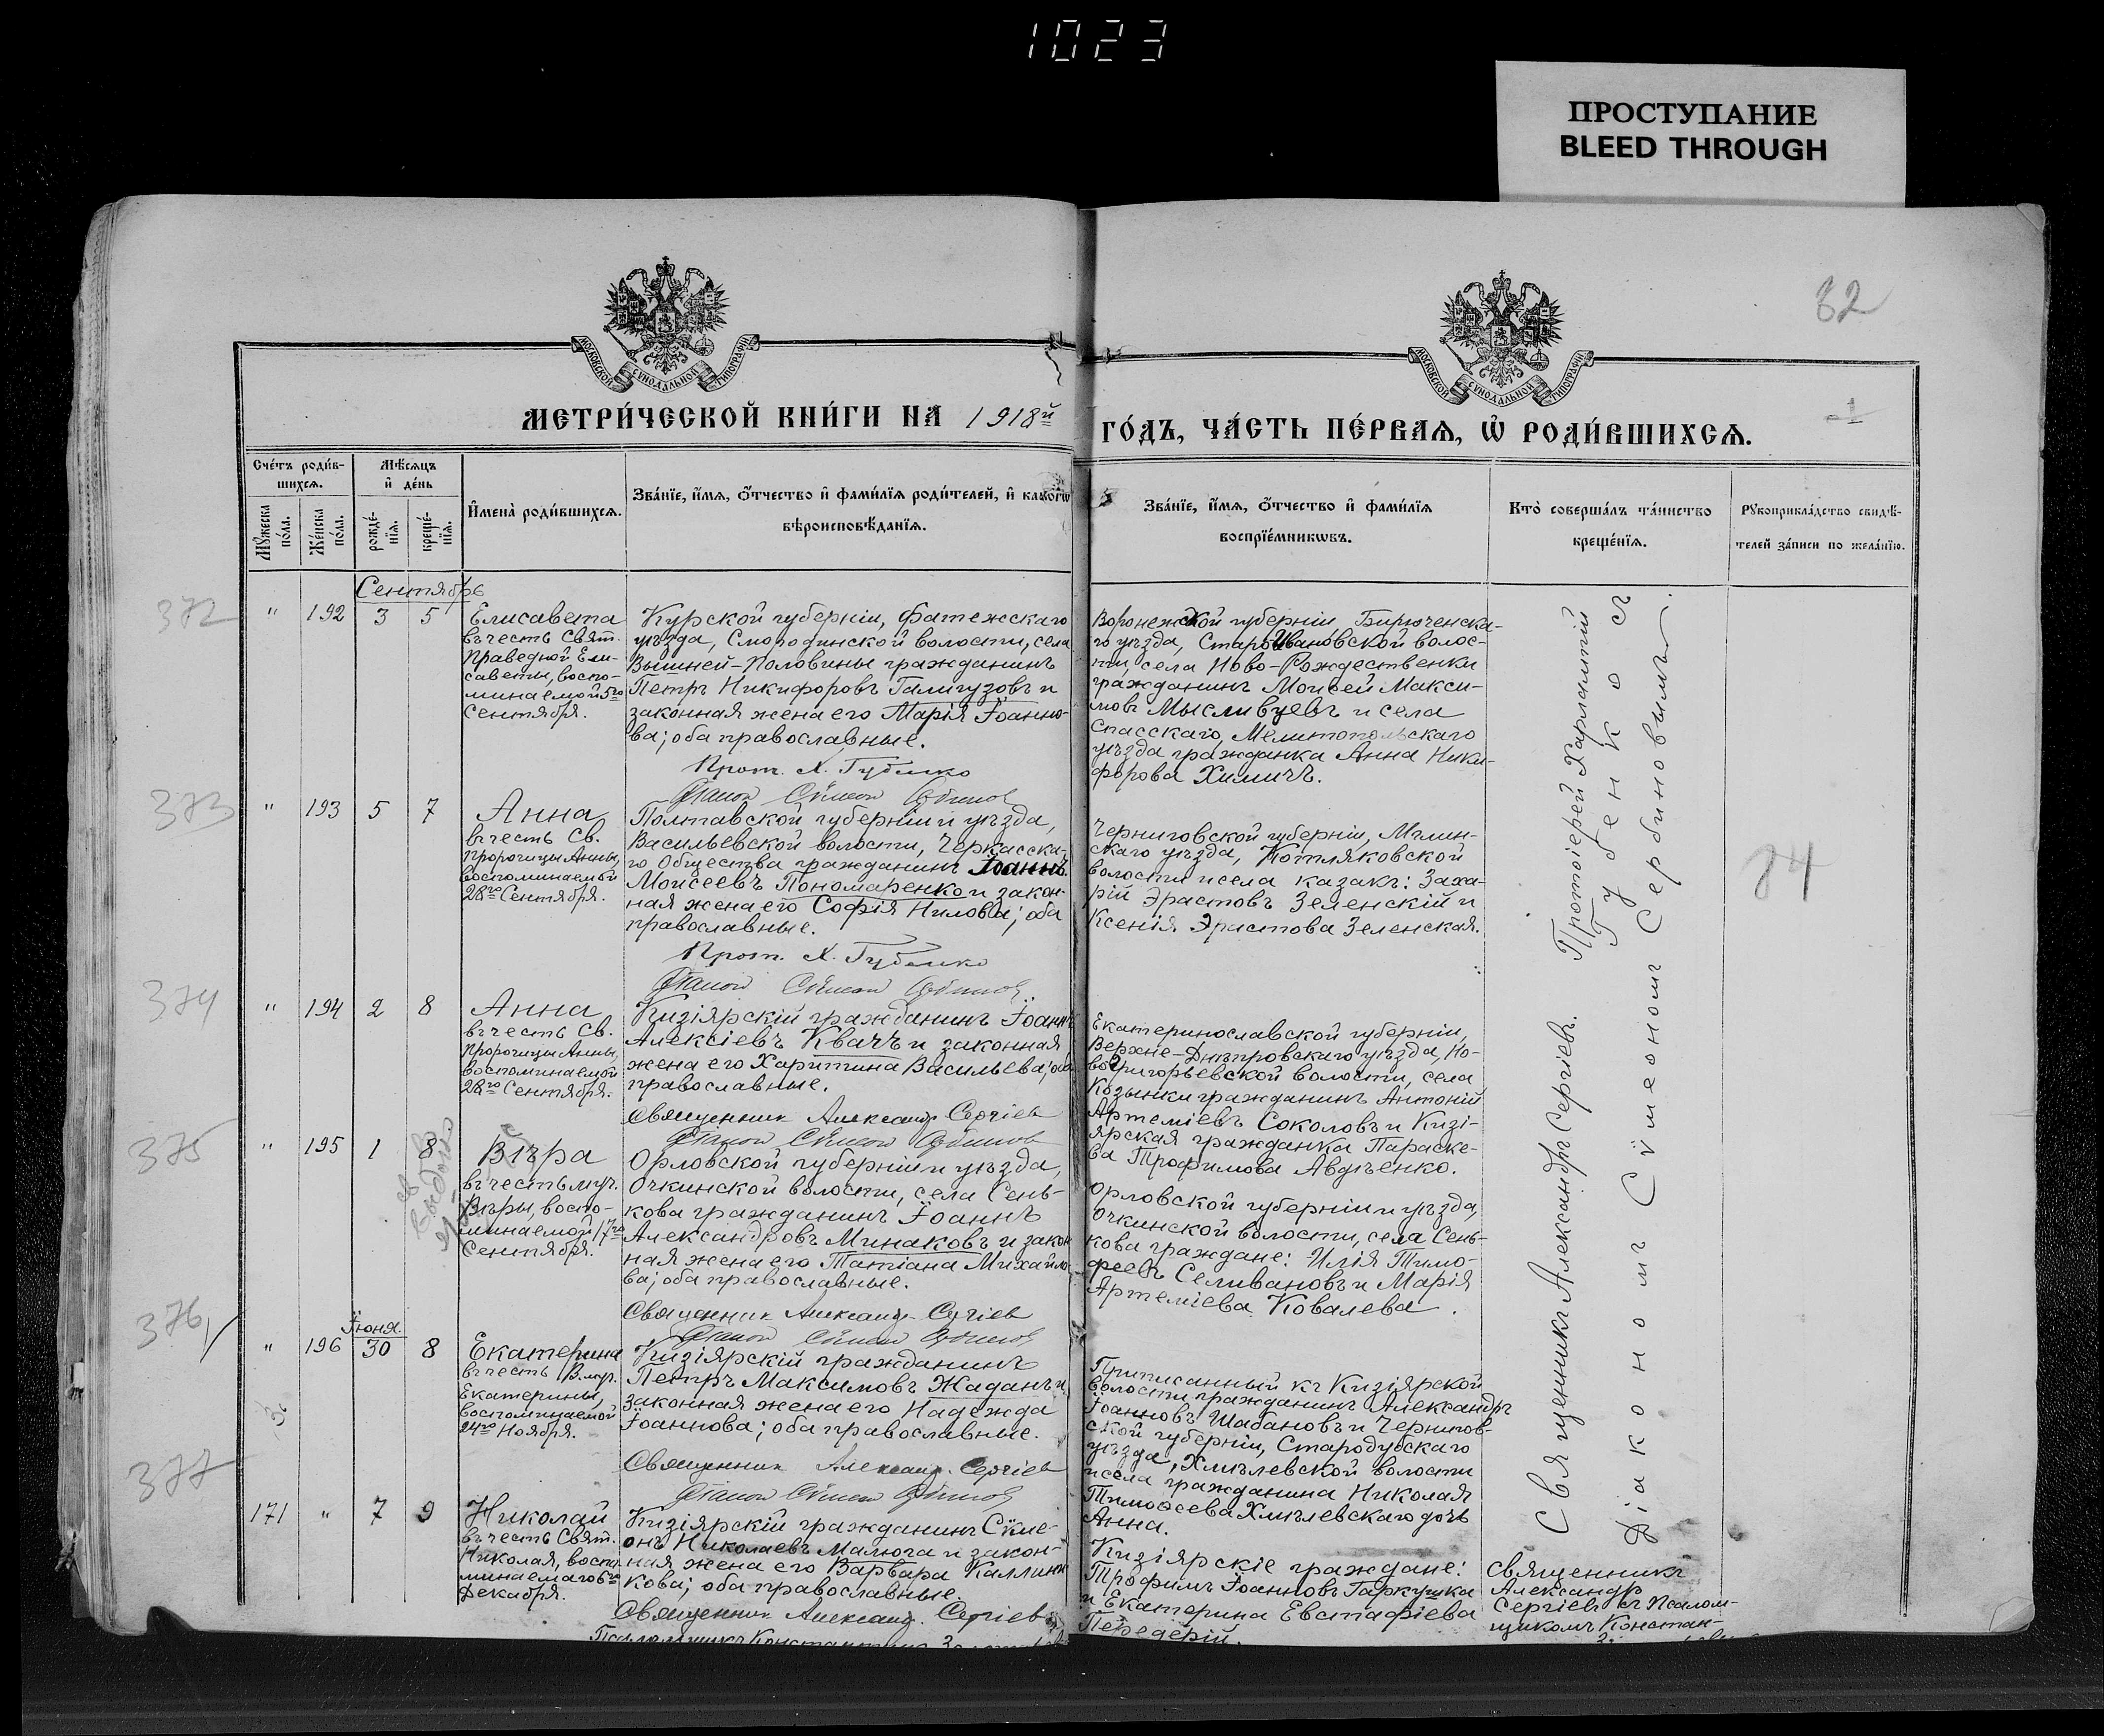 1023
ПРОСТУПАНИЕ
BLEED THROUGH
82
МОСКОВСКОЙ СѴНОДАЛЬНОЙ ТИПОГРАФІИ
МОСКОВСКОЙ СѴНОДАЛЬНОЙ ТИПОГРАФІИ
МЕТРИ́ЧЕСКОЙ КНИ́ГИ НА 1918й
ГО́ДЪ, ЧА́СТЬ ПЕ́РВАѦ, Ѡ҆ РОДИ́ВШИХСѦ.
1
Сче́тъ роди́в-
шихсѧ.
Мꙋжеска по́ла.
Же́нска по́ла.
Мѣ́сѧцъ
и҆ де́нь
рожде́-
нїѧ.
креще́-
нїѧ.
И҆мена̀ роди́вшихсѧ.
Зва́нїе, и҆́мѧ, ѻ҆́тчество и҆ фами́лїѧ роди́телей, и҆ како́гѡ
вѣроисповѣ́данїѧ.
Зва́нїе, и҆́мѧ, ѻ҆́тчество и҆ фами́лїѧ
воспрїе́мникѡвъ.
Кто̀ соверша́лъ та́инство
креще́нїѧ.
Рꙋкоприкла́дство свидѣ́-
телей за́писи по жела́нїю.
Сентябрь
372
" 192 3 5
Елисавета
въ честь Свят.
Праведной Ели-
саветы, воспо-
минаемой 5го
Сентября.
Курской губерніи, Фатежскаго
уѣзда, Смородинской волости, села
Вышней-Половины гражданинъ
Петръ Никифоровъ Галигузовъ и
законная жена его Марія Іоанно-
ва; оба православные.
Прот. Х. Губенко
Діаконъ Сѵмеонъ Сербиновъ
Воронежской губерніи, Бирюченска-
го уѣзда, СтароИвановской волос-
ти, села Ново-Рождественки
гражданинъ Моисей Макси-
мовъ Мысливцевъ и села
Спасскаго, Мелитопольскаго
уѣзда гражданка Анна Ники-
форова Химичъ.
373
" 193 5 7
Анна
въ честь Св.
Пророчицы Анны,
воспоминаемой
28го Сентября.
Полтавской губерніи и уѣзда,
Васильевской волости, Черкасска-
го Общества гражданинъ Іоаннъ
Моисеевъ Пономаренко и закон-
ная жена его Софія Нилова; оба
православные.
Прот. Х. Губенко
Діаконъ Сѵмеонъ Сербиновъ
Черниговской губерніи, Мглин-
скаго уѣзда, Котляковской
волости и села казакъ: Заха-
рій Эрастовъ Зеленскій и
Ксенія Эрастова Зеленская.
Протоіерей Харлампій
Губенко съ
Діакономъ Сѵмеономъ Сербиновымъ.
374
" 194 2 8
Анна
въ честь Св.
Пророчицы Анны,
воспоминаемой
28го Сентября.
Кизіярскій гражданинъ Іоаннъ
Алексіевъ Квачъ и законная
жена его Харитина Васильева; оба
православные.
Священникъ Александръ Сергіевъ
Діаконъ Сѵмеонъ Сербиновъ
Екатеринославской губерніи,
Верхне-Днѣпровскаго уѣзда, Но-
вогригорьевской волости, села
Козынки гражданинъ Антоній
Артеміевъ Соколовъ и Кизі-
ярская гражданка Параске-
ва Трофимова Авдѣенко.
375
" 195 1 8
Вѣра
въ честь муч.
Вѣры, воспо-
минаемой 17го
Сентября.
Орловской губерніи и уѣзда,
Очкинской волости, села Сень-
кова гражданинъ Іоаннъ
Александровъ Минаковъ и закон
ная жена его Татіана Михайло-
ва; оба православные.
Священникъ Александръ Сергіевъ
Діаконъ Сѵмеонъ Сербиновъ
Орловской губерніи и уѣзда,
Очкинской волости, села Сень-
кова граждане: Илія Тимо-
феевъ Селивановъ и Марія
Артеміева Ковалева.
Священникъ Александръ Сергіевъ.
376
Іюня.
" 196 30 8
Екатерина
въ честь В.муч.
Екатерины,
воспоминаемой
24го Ноября.
Кизіярскій гражданинъ
Петръ Максимовъ Жаданъ и
законная жена его Надежда
Іоаннова; оба православные.
Священникъ Александръ Сергіевъ
Діаконъ Сѵмеонъ Сербиновъ
Приписанный къ Кизіярской
волости гражданинъ Александръ
Іоанновъ Шабановъ и Чернигов-
ской губерніи, Стародубскаго
уѣзда, Хмѣлевской волости
и села гражданина Николая
Тимоѳеева Хмѣлевскаго дочь
Анна.
377
171 " 7 9
Николай
въ честь Свят.
Николая, воспо-
минаемаго 6го
Декабря.
Кизіярскій гражданинъ Сѵме-
онъ Николаевъ Малюга и закон-
ная жена его Варвара Каллини
кова; оба православные.
Священникъ Александръ Сергіевъ
Кизіярскіе граждане:
Трофимъ Іоанновъ Гаркушка
и Екатерина Евстафіева
Передерій.
Священникъ
Александръ
Сергіевъ съ Псалом-
щикомъ Констан-